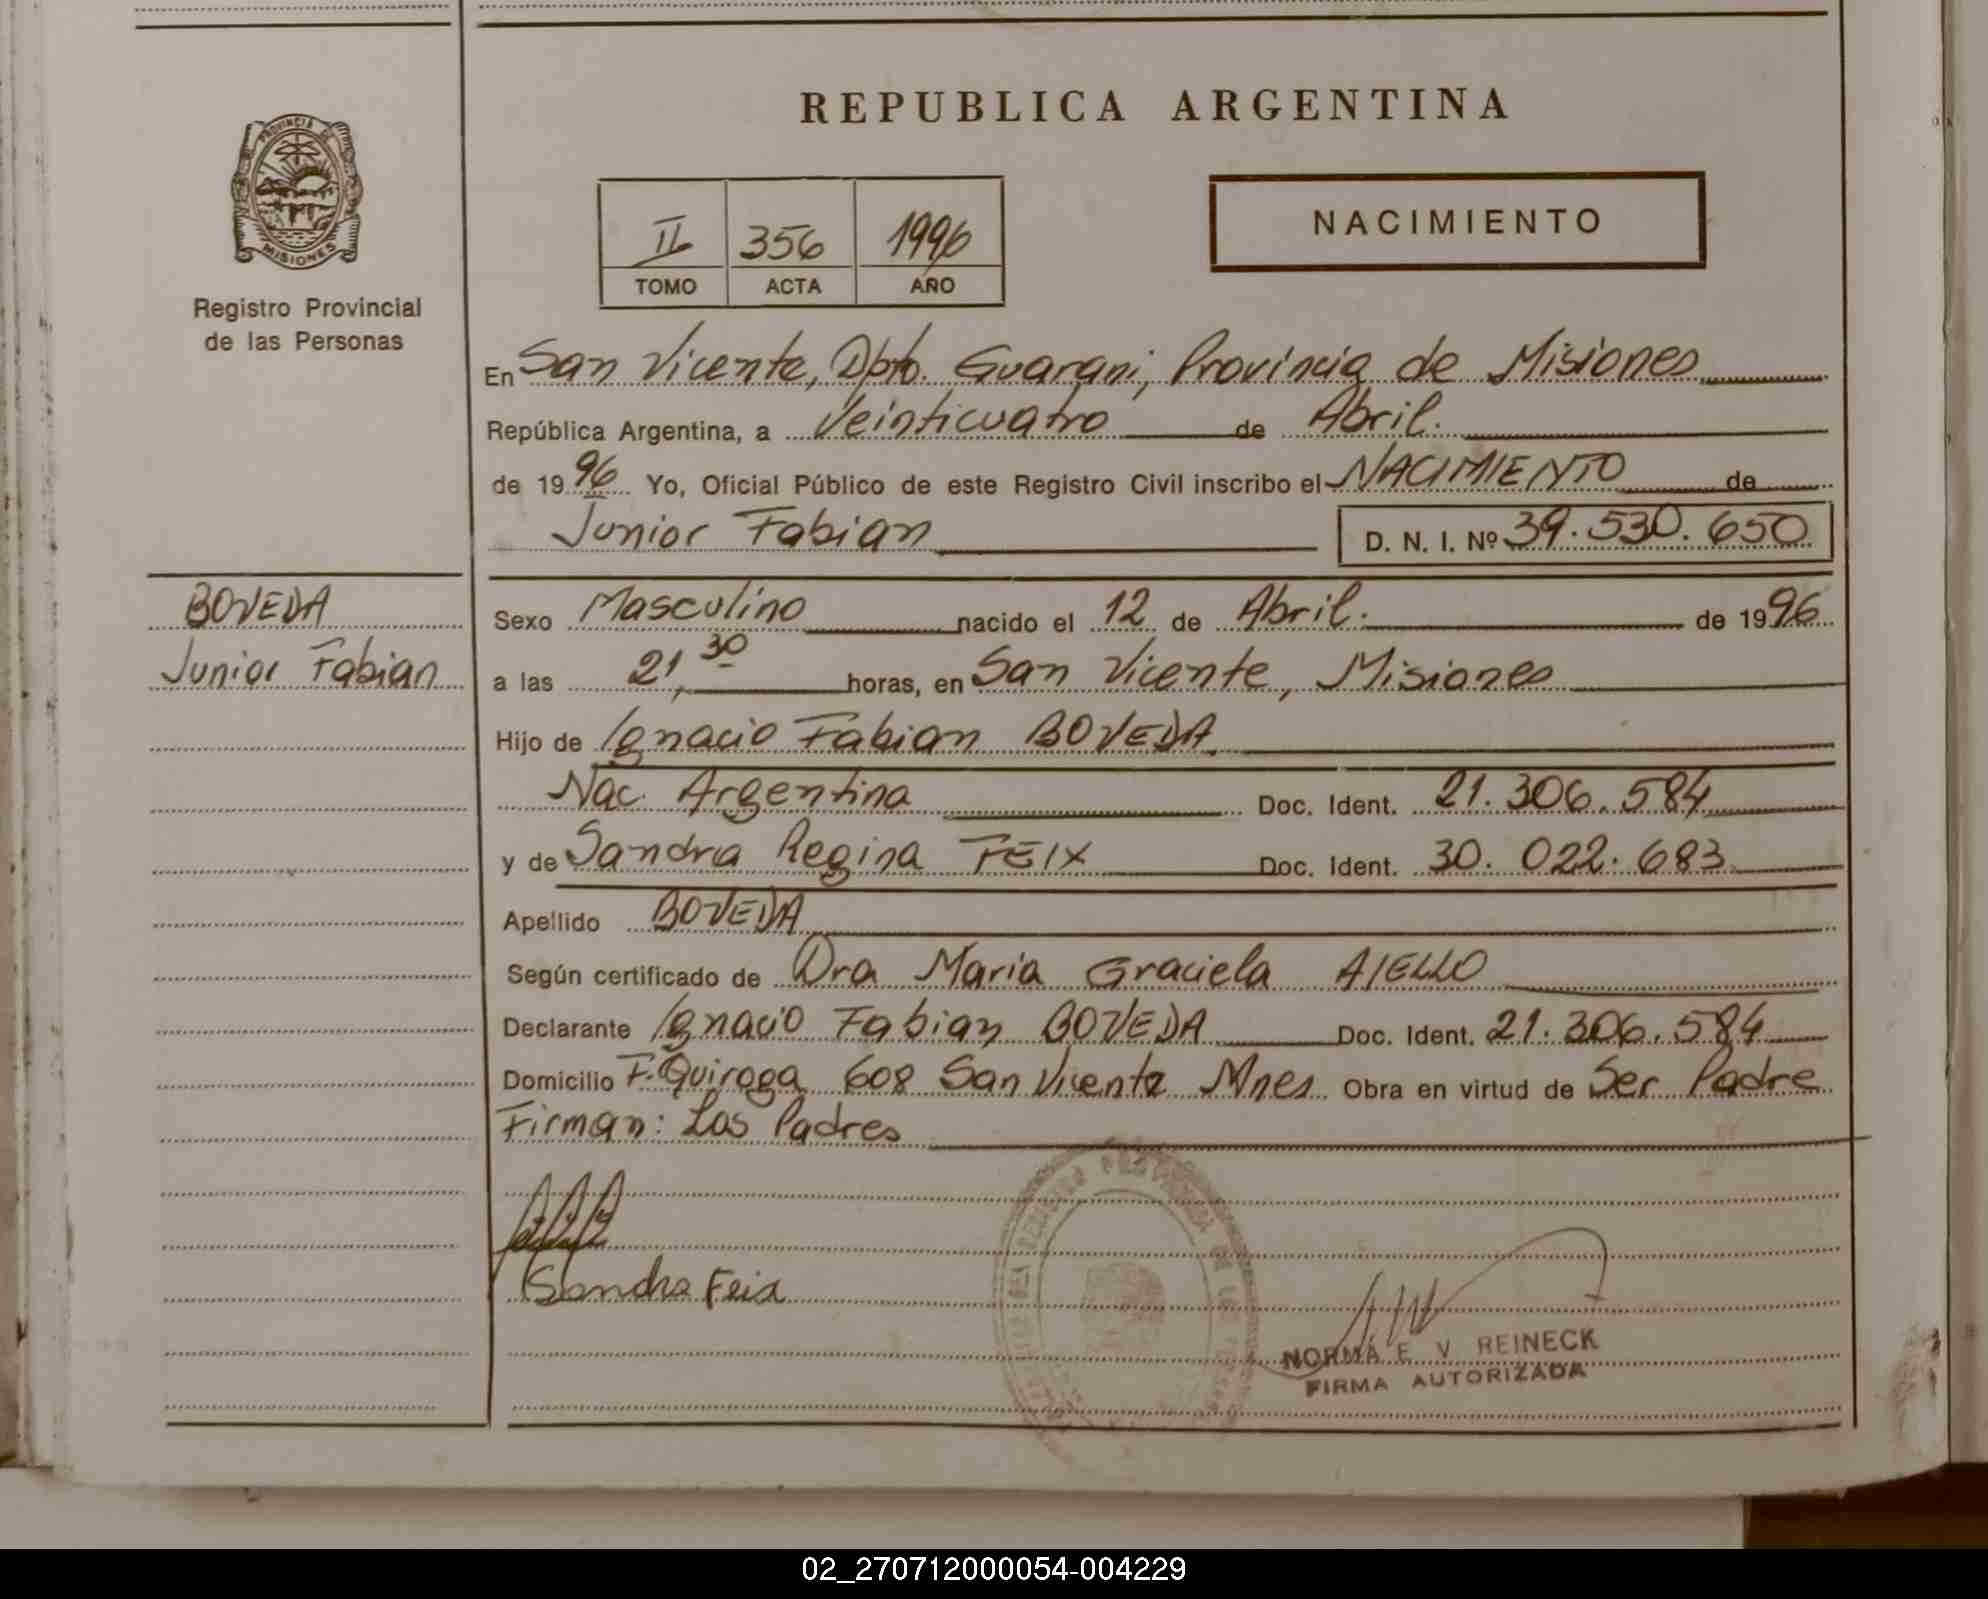 REPUBLICA ARGENTINA
PROVINCIA DE
MISIONES
Registro Provincial
de las Personas
II 356 1996
TOMO ACTA AÑO
NACIMIENTO
En San Vicente, Dpto. Guarani, Provincia de Misiones
República Argentina, a Veinticuatro de Abril.
de 1996 Yo, Oficial Público de este Registro Civil inscribo el NACIMIENTO de
Junior Fabian D. N. I. Nº 39.530.650
BOVEDA
Junior Fabian
Sexo Masculino nacido el 12 de Abril. de 1996
a las 21,30 horas, en San Vicente, Misiones
Hijo de Ignacio Fabian BOVEDA
Nac. Argentina Doc. Ident. 21.306.584
y de Sandra Regina FEIX Doc. Ident. 30.022.683
Apellido BOVEDA
Según certificado de Dra Maria Graciela AIELLO
Declarante Ignacio Fabian BOVEDA Doc. Ident. 21.306.584
Domicilio F. Quiroga 608 San Vicente Mnes Obra en virtud de Ser Padre
Firman: Los Padres
Sandra Feix
NORMA E. V. REINECK
FIRMA AUTORIZADA
02_270712000054-004229